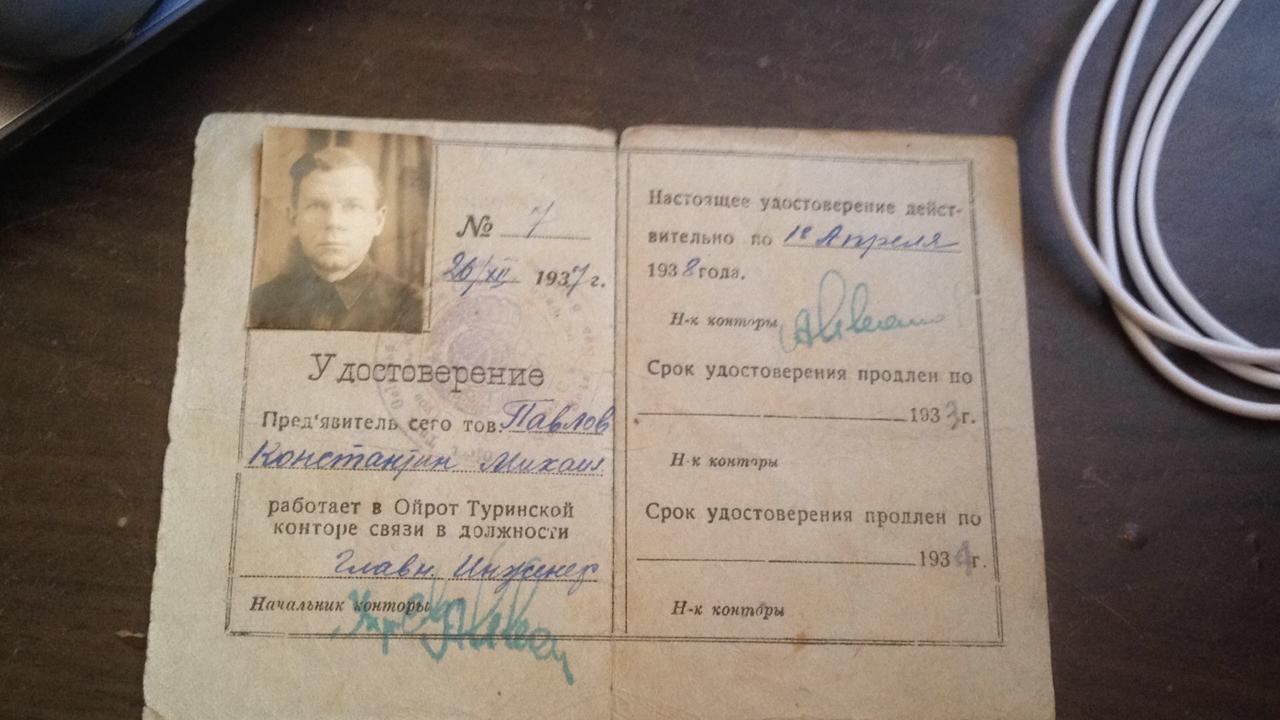 № 7
26/XII 1937 г.
Удостоверение
Пред'явитель сего тов. Павлов
Константин Михаил
работает в Ойрот Туринской
конторе связи в должности
Главн. Инженер
Начальник конторы
Настоящее удостоверение дейст-
вительно по 1е Апреля
1938 года.
Н-к конторы
Срок удостоверения продлен по
1933 г.
Н-к конторы
Срок удостоверения продлен по
1934 г.
Н-к конторы